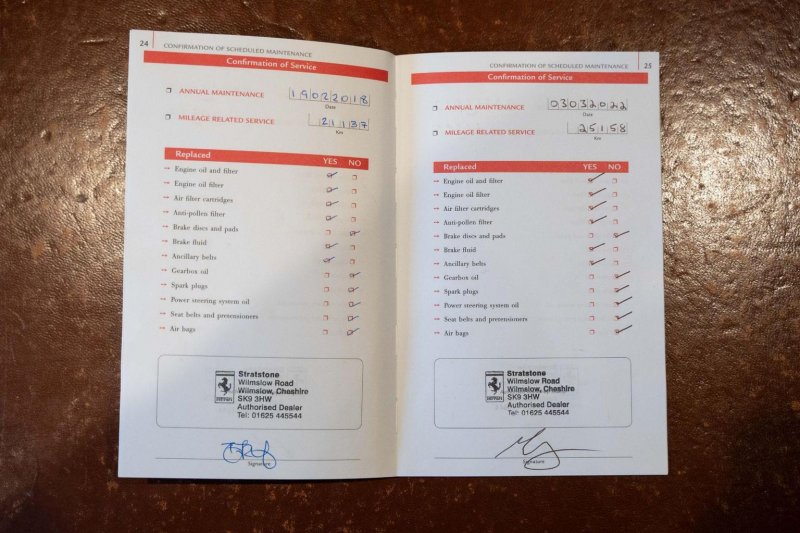 24 CONFIRMATION OF SCHEDULED MAINTENANCE
Confirmation of Service
ANNUAL MAINTENANCE 19022018
Date
MILEAGE RELATED SERVICE 21137
Km
Replaced YES NO
Engine oil and filter
Engine oil filter
Air filter cartridges
Anti-pollen filter
Brake discs and pads
Brake fluid
Ancillary belts
Gearbox oil
Spark plugs
Power steering system oil
Seat belts and pretensioners
Air bags
Stratstone
Wilmslow Road
Wilmslow, Cheshire
SK9 3HW
Authorised Dealer
Tel: 01625 445544
Ferrari
Signature
CONFIRMATION OF SCHEDULED MAINTENANCE 25
Confirmation of Service
ANNUAL MAINTENANCE 03032022
Date
MILEAGE RELATED SERVICE 25158
Km
Replaced YES NO
Engine oil and filter
Engine oil filter
Air filter cartridges
Anti-pollen filter
Brake discs and pads
Brake fluid
Ancillary belts
Gearbox oil
Spark plugs
Power steering system oil
Seat belts and pretensioners
Air bags
Stratstone
Wilmslow Road
Wilmslow, Cheshire
SK9 3HW
Authorised Dealer
Tel: 01625 445544
Ferrari
Signature